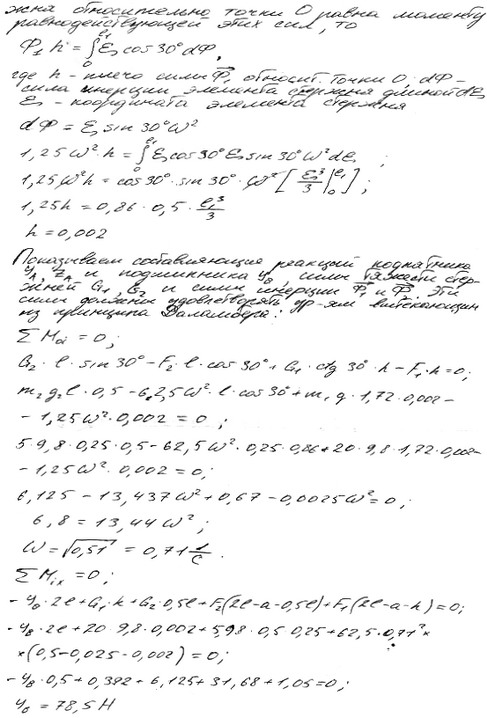 жна относительно точки О равна моменту
равнодействующей этих сил, то
Ф₁ h = ∫₀^ℓ₁ ξ₁ cos 30° dФ,
где h - плечо силы Ф₁ относит. точки О; dФ -
сила инерции элемента стержня длиной dξ
ξ₁ - координата элемента стержня
dФ = ξ₁ sin 30° ω²
1,25 ω² · h = ∫₀^ℓ₁ ξ₁ cos 30° ξ₁ sin 30° ω² dξ₁ ;
1,25 ω² h = cos 30° · sin 30° · ω² [ ξ₁³/3 |₀^ℓ₁ ] ;
1,25 h = 0,86 · 0,5 · ℓ₁³/3
h = 0,002
Показываем составляющие реакций подпятника
y_A, z_A и подшипника y_B, силы тяжести стер-
жней G₁, G₂ и силы инерции Ф₁ и Ф. Эти
силы должны удовлетворять ур-ям вытекающим
из принципа Даламбера:
Σ M₀ᵢ = 0 ;
G₂ · ℓ · sin 30° - F₂ · ℓ · cos 30° + G₁ · ctg 30° · h - F₁ · h = 0 ;
m₂ g₂ ℓ · 0,5 - 62,5 ω² · ℓ · cos 30° + m₁ g · 1,72 · 0,002 -
- 1,25 ω² · 0,002 = 0 ;
5 · 9,8 · 0,25 · 0,5 - 62,5 ω² · 0,25 · 0,86 + 20 · 9,8 · 1,72 · 0,002 -
- 1,25 ω² · 0,002 = 0 ;
6,125 - 13,437 ω² + 0,67 - 0,0025 ω² = 0 ;
6,8 = 13,44 ω² ;
ω = √0,51 = 0,71 1/с .
Σ M_ix = 0 ;
- y_B · 2ℓ + G₁ · h + G₂ 0,5ℓ + F₂ (2ℓ - a - 0,5ℓ) + F₁ (2ℓ - a - h) = 0 ;
- y_B · 2ℓ + 20 · 9,8 · 0,002 + 5 · 9,8 · 0,5 · 0,25 + 62,5 · 0,71² ×
× (0,5 - 0,025 - 0,002) = 0 ;
- y_B · 0,5 + 0,392 + 6,125 + 31,68 + 1,05 = 0 ;
y_B = 78,5 Н